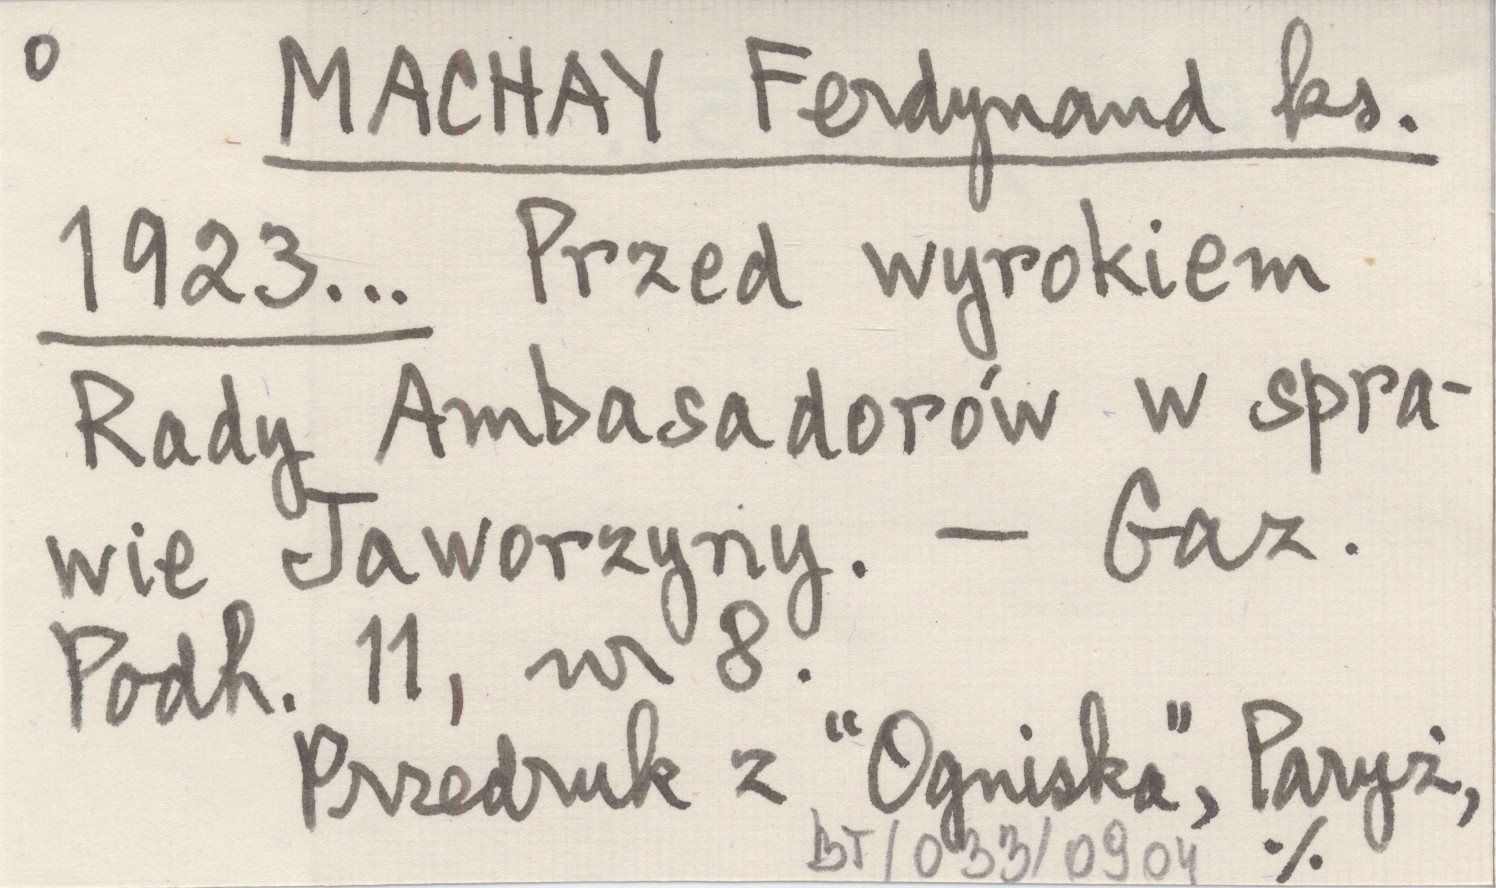 o MACHAY Ferdynand ks.
1923... Przed wyrokiem
Rady Ambasadorów w spra-
wie Jaworzyny. — Gaz.
Podh. 11, nr 8.
Przedruk z "Ogniska", Paryż,
BT/033/0904 ./.